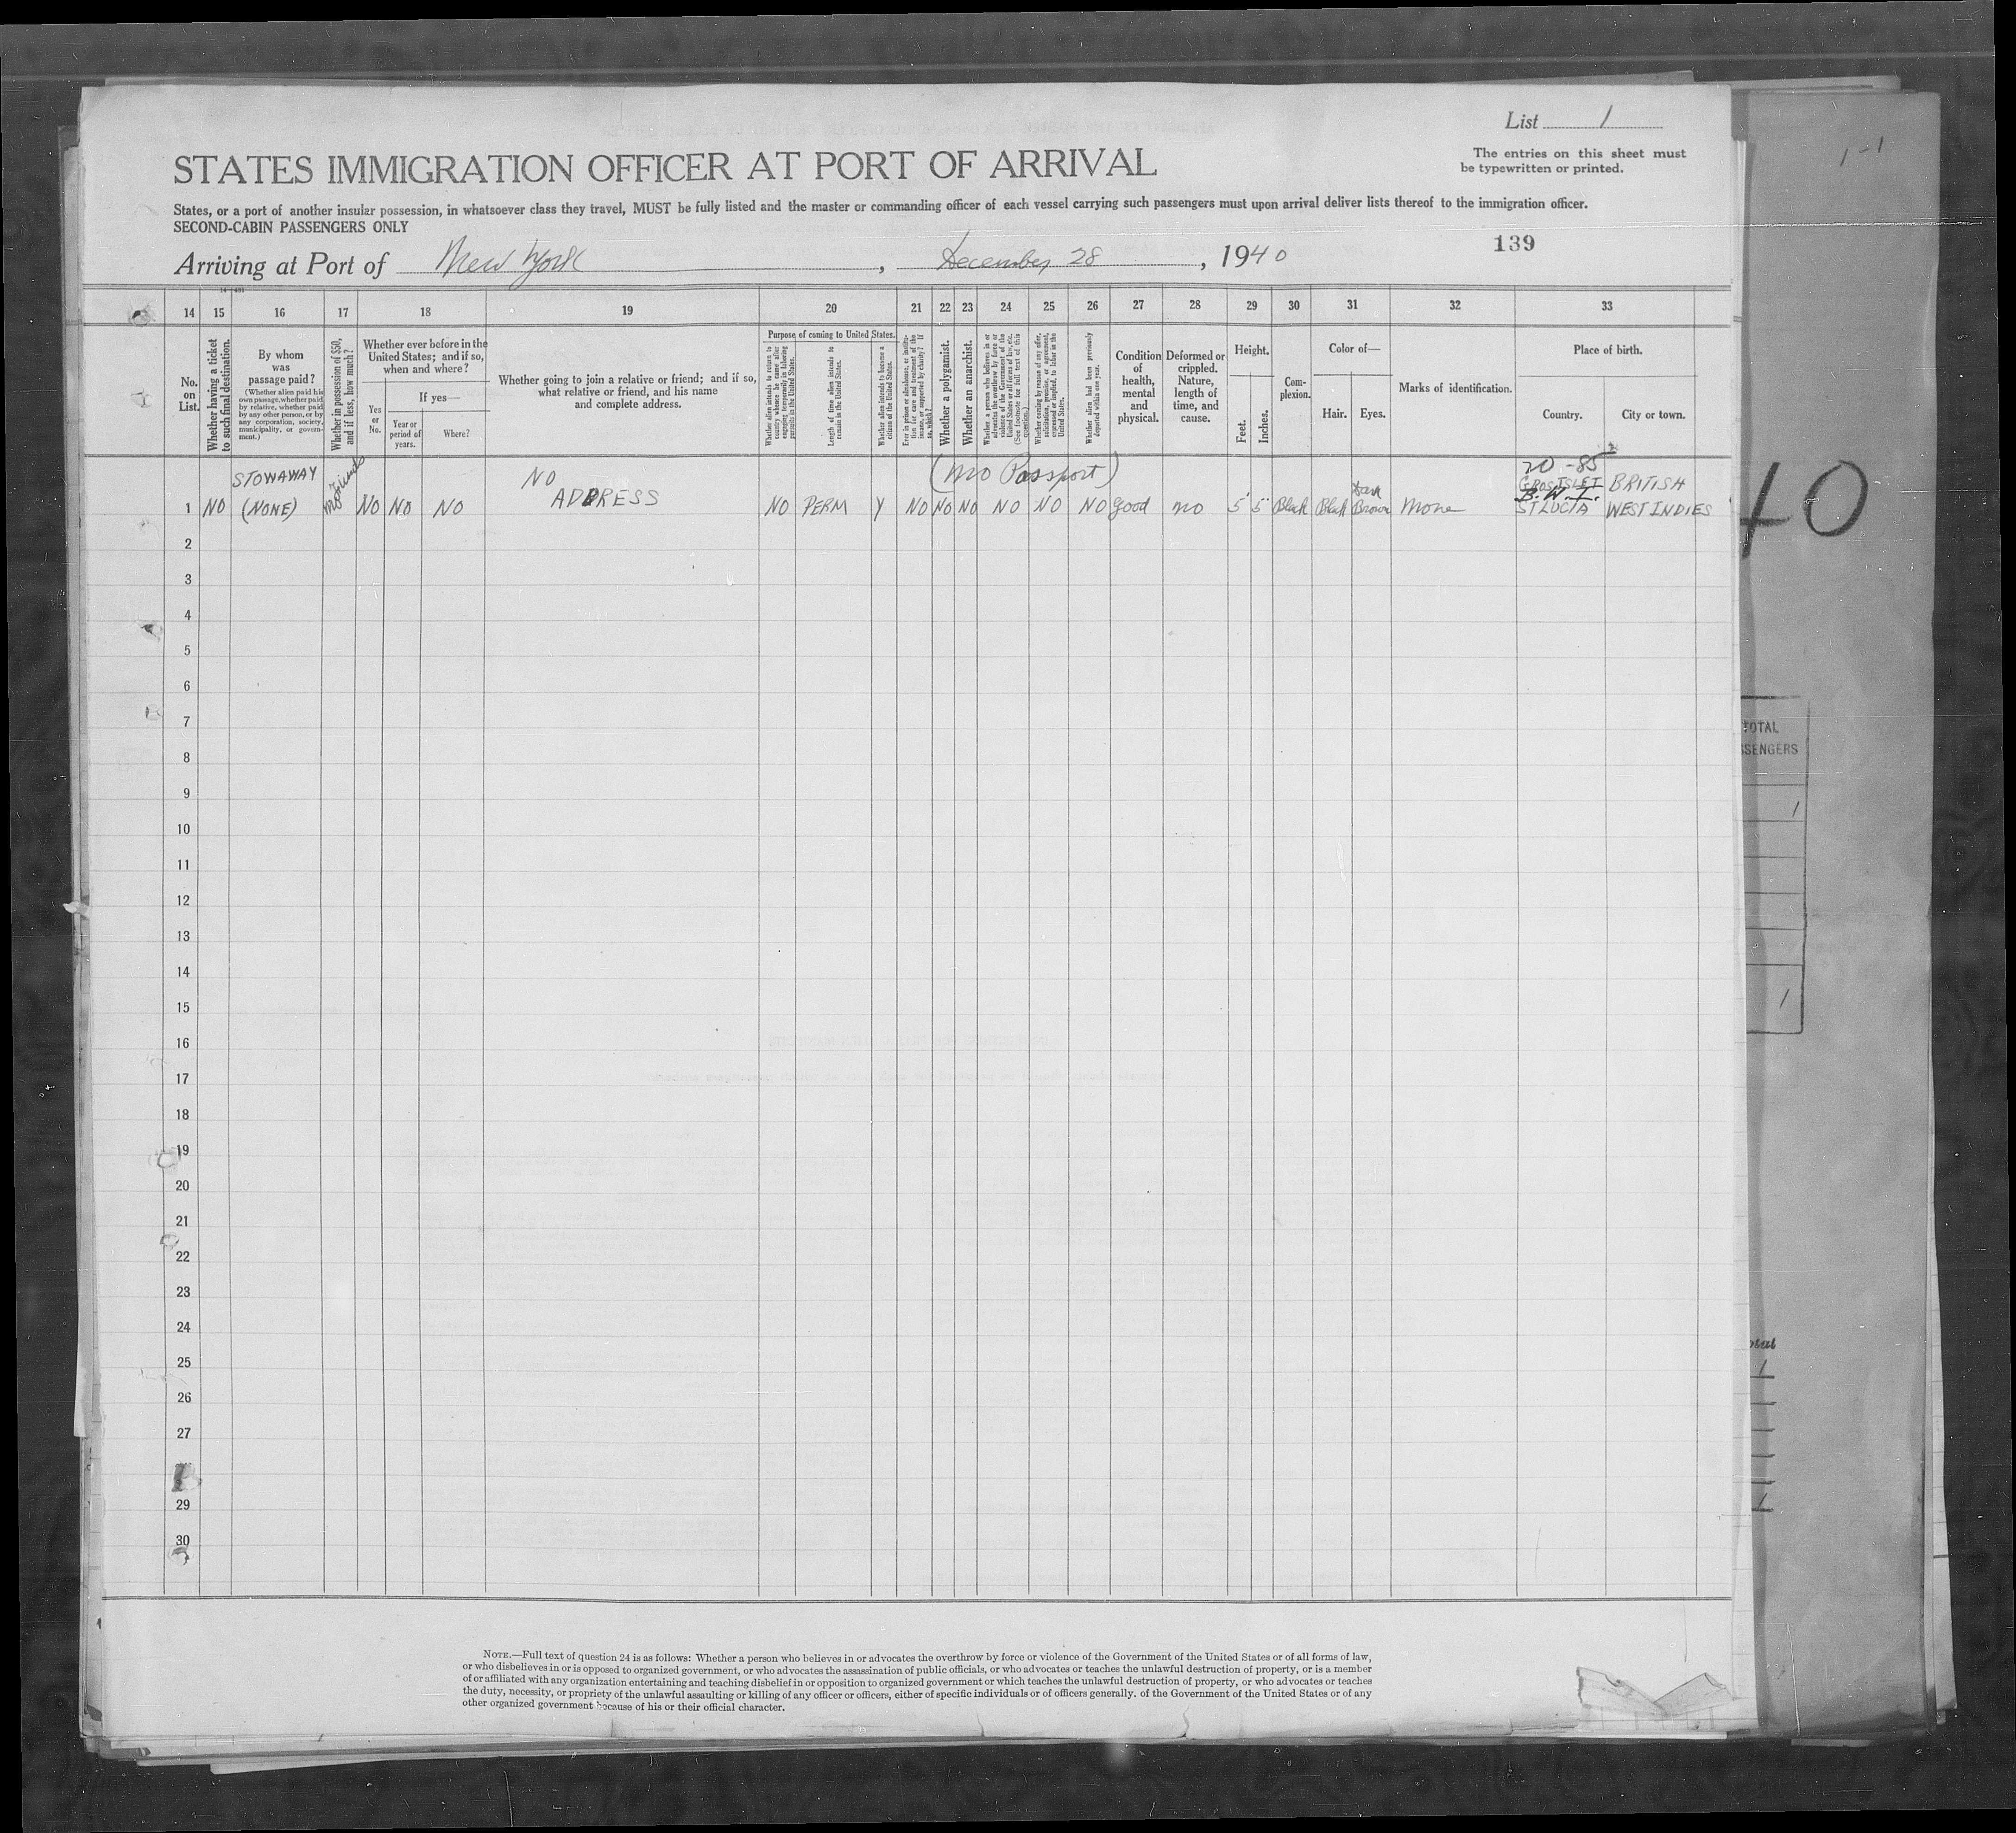 List 1
1-1
The entries on this sheet must
be typewritten or printed.
STATES IMMIGRATION OFFICER AT PORT OF ARRIVAL
States, or a port of another insular possession, in whatsoever class they travel, MUST be fully listed and the master or commanding officer of each vessel carrying such passengers must upon arrival deliver lists thereof to the immigration officer.
SECOND-CABIN PASSENGERS ONLY
139
Arriving at Port of New York, December 28, 1940
14 15 16 17 18 19 20 21 22 23 24 25 26 27 28 29 30 31 32 33
No. on List.
Whether having a ticket to such final destination.
By whom was passage paid?
(Whether alien paid his own passage, whether paid by relative, whether paid by any other person, or by any corporation, society, municipality, or government.)
Whether in possession of $50, and if less, how much?
Whether ever before in the United States; and if so, when and where?
Yes or No.
If yes—
Year or period of years.
Where?
Whether going to join a relative or friend; and if so, what relative or friend, and his name and complete address.
Purpose of coming to United States.
Whether alien intends to return to country whence he came after engaging temporarily in laboring pursuits in the United States.
Length of time alien intends to remain in the United States.
Whether alien intends to become a citizen of the United States.
Ever in prison or almshouse, or institution for care and treatment of the insane, or supported by charity? If so, which?
Whether a polygamist.
Whether an anarchist.
Whether a person who believes in or advocates the overthrow by force or violence of the Government of the United States or all forms of law, etc. (See footnote for full text of this question.)
Whether coming by reason of any offer, solicitation, promise, or agreement, expressed or implied, to labor in the United States.
Whether alien had been previously deported within one year.
Condition of health, mental and physical.
Deformed or crippled. Nature, length of time, and cause.
Height.
Feet.
Inches.
Complexion.
Color of—
Hair.
Eyes.
Marks of identification.
Place of birth.
Country.
City or town.
STOWAWAY NO (No Passport) 20 -85
GROS ISLET BRITISH
B.W.I.
1 NO (NONE) No Funds NO NO NO ADDRESS NO PERM Y NO NO NO NO NO NO good no 5 5 Black Black Dark Brown None ST LUCIA WEST INDIES
40
2
3
4
5
6
7
8
9
10
11
12
13
14
15
16
17
18
19
20
21
22
23
24
25
26
27
29
30
TOTAL
SSENGERS
1
1
otal
1
1
NOTE.—Full text of question 24 is as follows: Whether a person who believes in or advocates the overthrow by force or violence of the Government of the United States or of all forms of law,
or who disbelieves in or is opposed to organized government, or who advocates the assassination of public officials, or who advocates or teaches the unlawful destruction of property, or is a member
of or affiliated with any organization entertaining and teaching disbelief in or opposition to organized government or which teaches the unlawful destruction of property, or who advocates or teaches
the duty, necessity, or propriety of the unlawful assaulting or killing of any officer or officers, either of specific individuals or of officers generally. of the Government of the United States or of any
other organized government because of his or their official character.